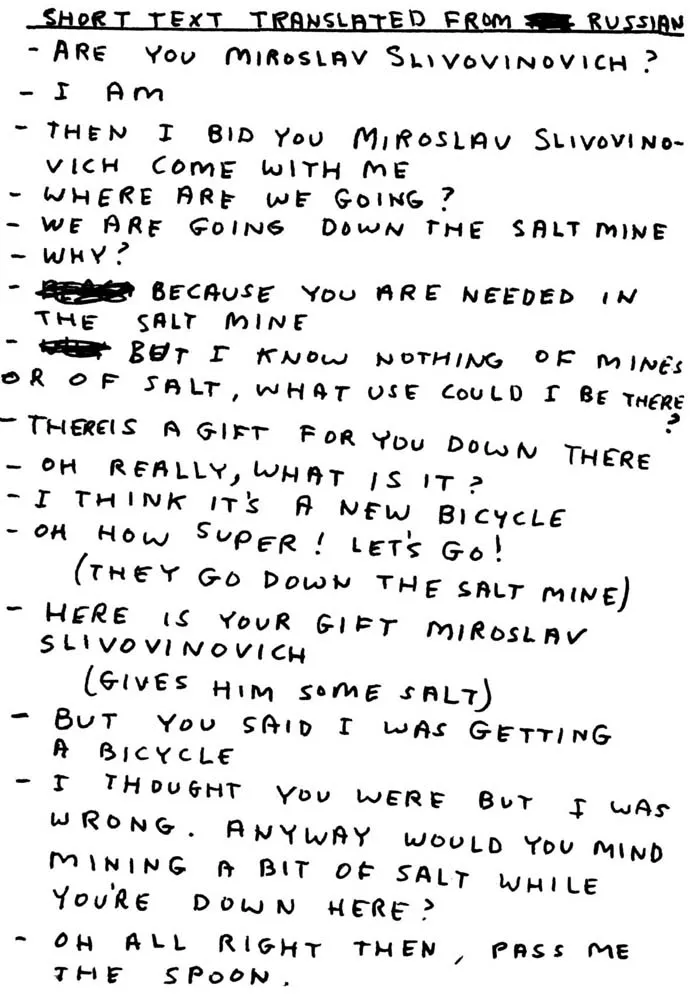 SHORT TEXT TRANSLATED FROM RUSSIAN
- ARE YOU MIROSLAV SLIVOVINOVICH?
- I AM
- THEN I BID YOU MIROSLAV SLIVOVINO-
VICH COME WITH ME
- WHERE ARE WE GOING?
- WE ARE GOING DOWN THE SALT MINE
- WHY?
- BECAUSE YOU ARE NEEDED IN
THE SALT MINE
- BUT I KNOW NOTHING OF MINES
OR OF SALT, WHAT USE COULD I BE THERE
?
- THERE IS A GIFT FOR YOU DOWN THERE
- OH REALLY, WHAT IS IT?
- I THINK IT'S A NEW BICYCLE
- OH HOW SUPER! LET'S GO!
(THEY GO DOWN THE SALT MINE)
- HERE IS YOUR GIFT MIROSLAV
SLIVOVINOVICH
(GIVES HIM SOME SALT)
- BUT YOU SAID I WAS GETTING
A BICYCLE
- I THOUGHT YOU WERE BUT I WAS
WRONG. ANYWAY WOULD YOU MIND
MINING A BIT OF SALT WHILE
YOU'RE DOWN HERE?
- OH ALL RIGHT THEN, PASS ME
THE SPOON.